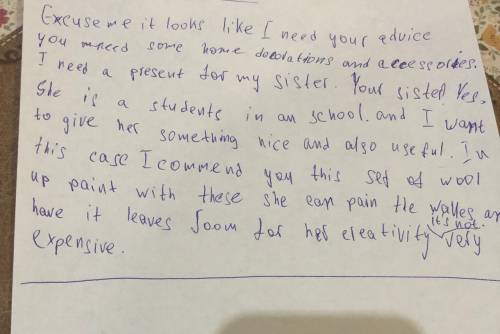 Excuse me it looks like I need your advice
you need some home decorations and accessories.
I need a present for my sister. Your sister? Yes,
She is a students in an school. and I want
to give her something nice and also useful. In
this case I commend you this set of wool
up paint with these she can pain the walles an
have it leaves room for her creativity it's not very
expensive.